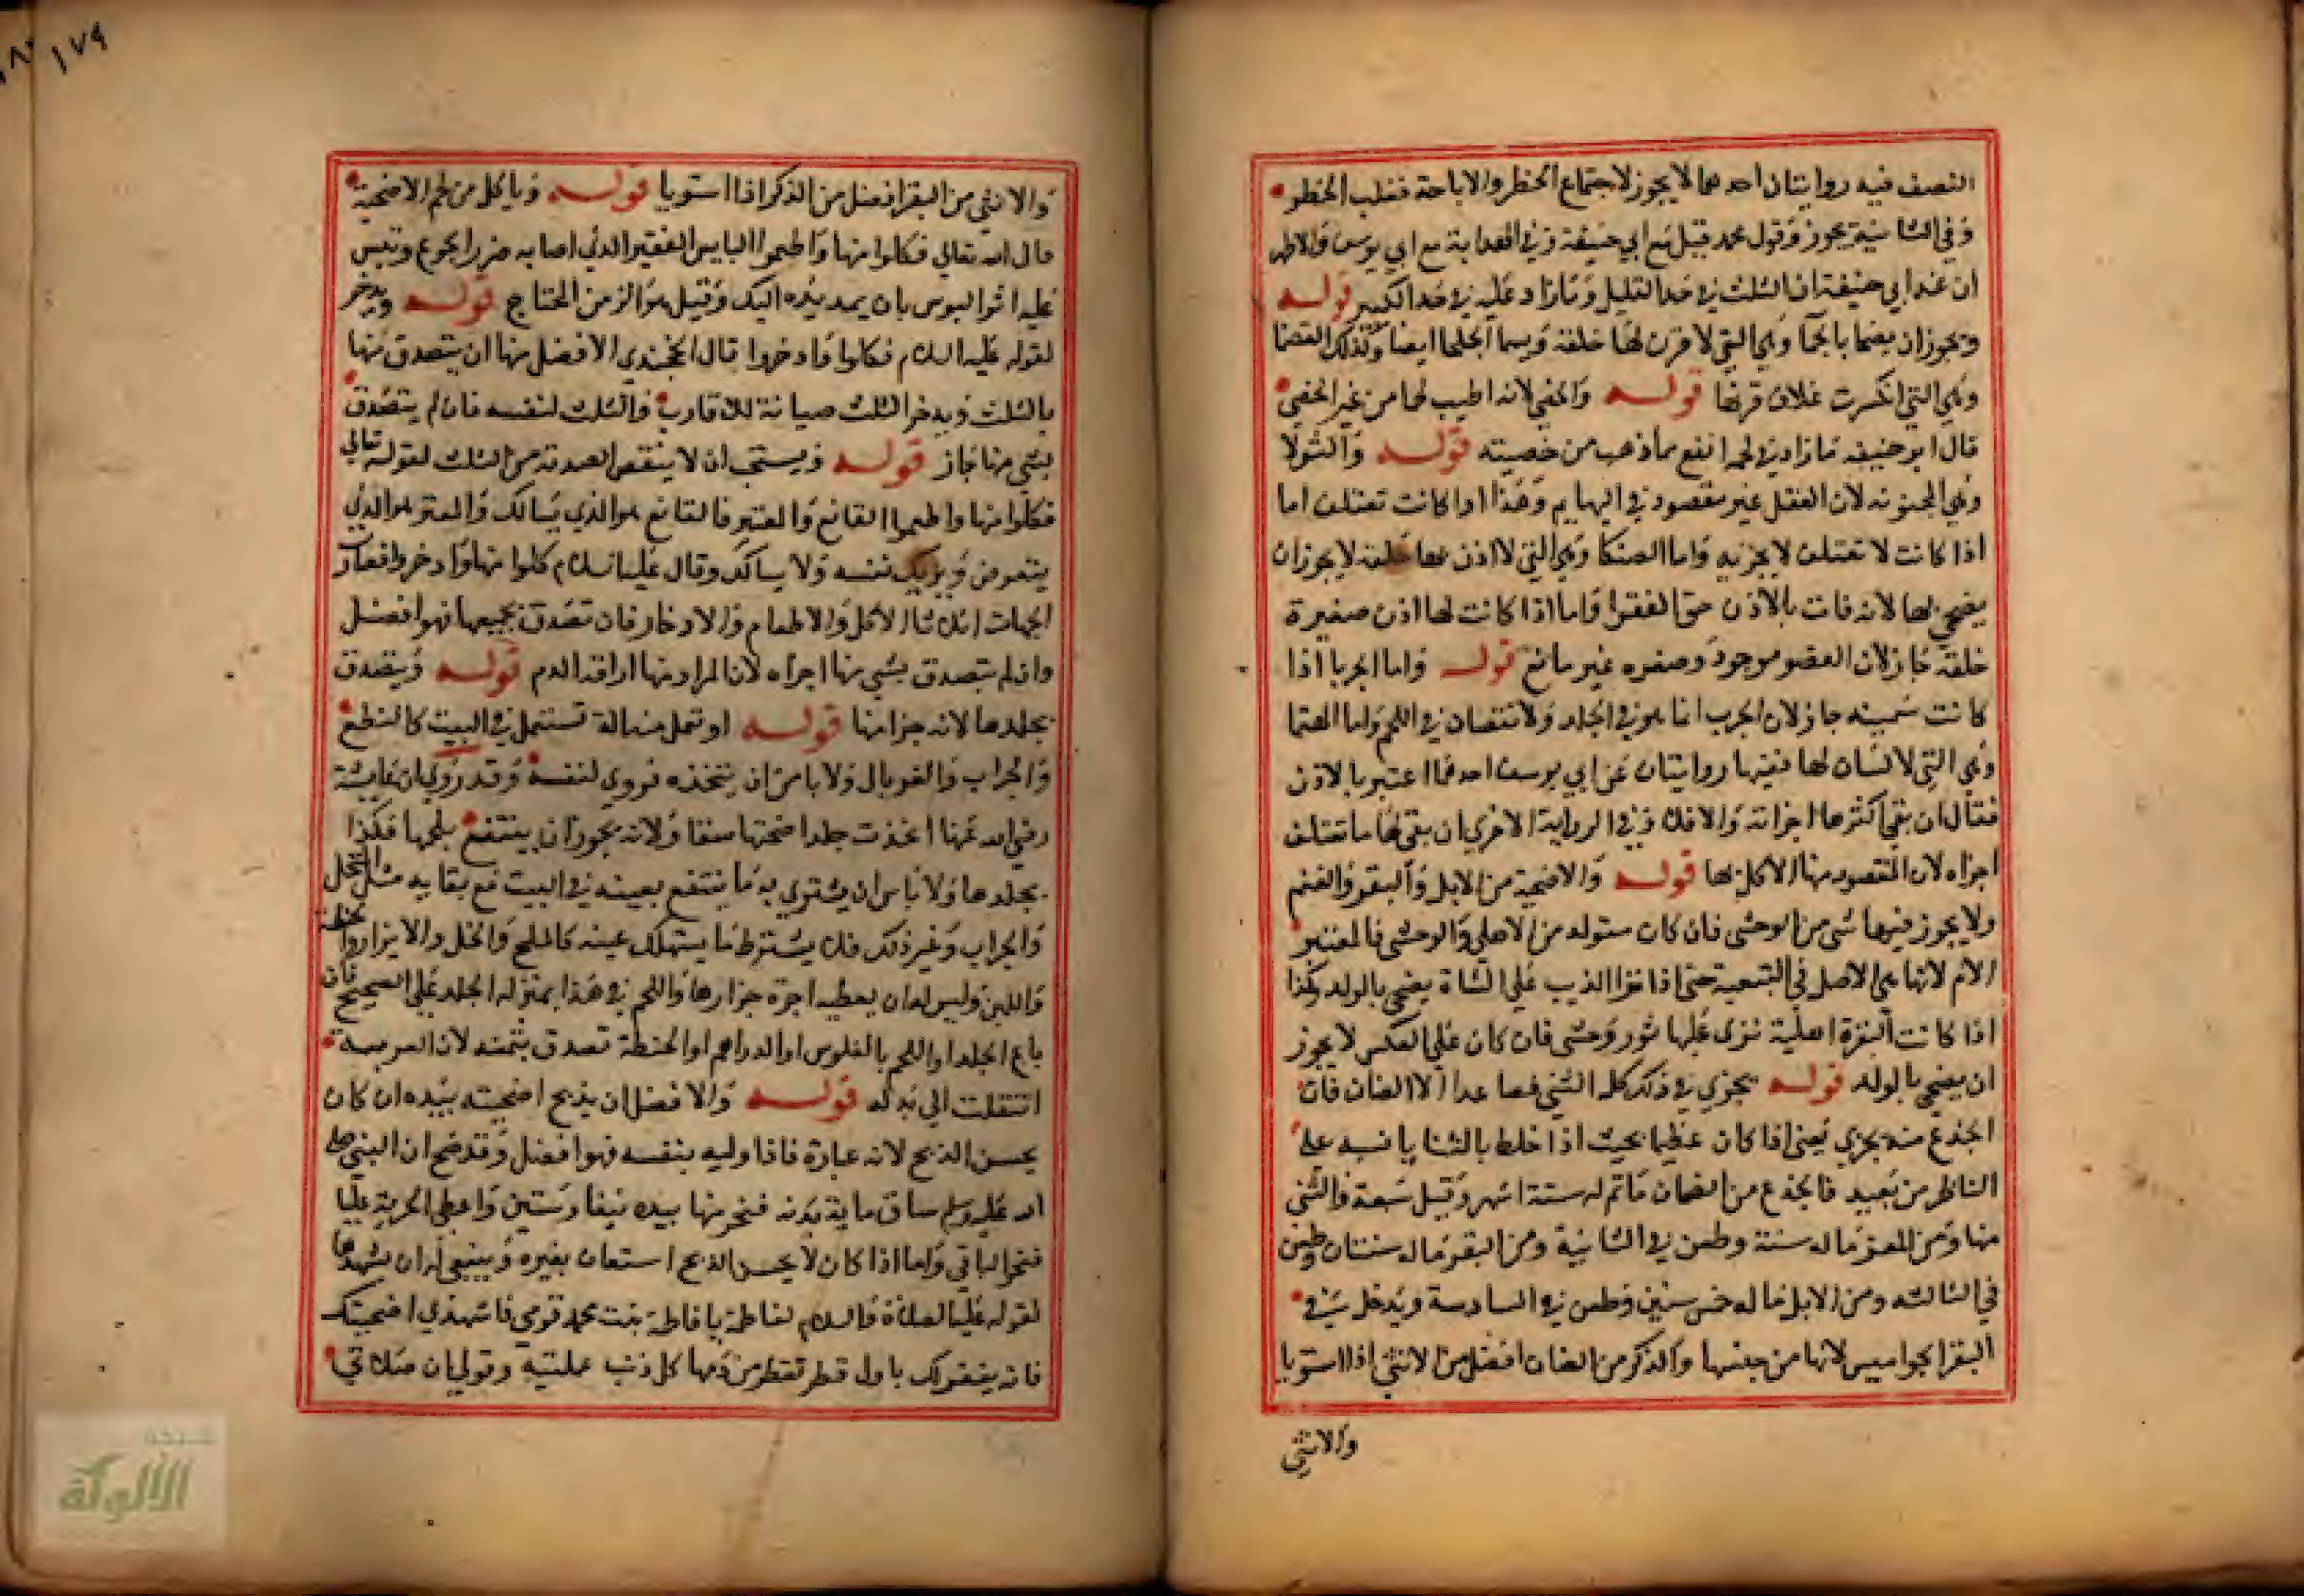 النصف فيه روايتان احدهما لا يجوز لاجتماع الحظر والاباحة فغلب الحظر
وفي الثانية يجوز وقول محمد قيل مع ابي حنيفة وفي الهداية مع ابي يوسف والاظهر
ان عند ابي حنيفة ان الثلث في حد القليل وما زاد عليه في حد الكثير قوله
ويجوز ان يضحا بالجما وهي التي لا قرن لها خلقة ويسما الجلحا ايضا وكذلك القصما
وهي التي انكسرت غلاف قرنها قوله والخصي لانه اطيب لحما من غير الخصي
قال ابو حنيفة ما زاد في لحمه انفع مما ذهب من خصيته قوله والثولا
وهي المجنونه لان العقل غير مقصود في البهايم وهذا اذا كانت تعتلف اما
اذا كانت لا تعتلف لا يجزيه واما السكا وهي التي لا اذن لها خلقة لا يجوز ان
يضحي بها لانه فات بالاذن حق الفقرا واما اذا كانت لها اذن صغيرة
خلقة جاز لان العضو موجود وصغره غير مانع قوله واما الجربا اذا
كانت سمينه جاز لان الجرب انما هو في الجلد ولا نقصان في اللحم واما الهتما
وهي التي لا اسنان لها ففيها روايتان عن ابي يوسف احدهما اعتبر بالاذن
فقال ان بقي اكثرها اجزاته والا فلا وفي الرواية الاخري ان بقي لها ما تعتلف
اجزاه لان المقصود منها الاكل بها قوله والاضحية من الابل والبقر والغنم
ولا يجوز فيها شي من الوحشي فان كان متولد من الاهلي والوحشي فالمعتبر
الام لانها هي الاصل في التبعية حتي اذا نزا الذيب علي الشاة يضحي بالولد وكذا
اذا كانت البقرة اهلية نزى عليها ثور وحشي فان كان علي العكس لا يجوز
ان يضحي بالولد قوله يجزي في ذلك كله الثني فصاعدا الا الضان فان
الجذع منه يجزي يعني اذا كان عظيما بحيث اذا خلط بالثنايا اشتبه على
الناظر من بعيد فالجذع من الضان ما تم له ستة اشهر وقيل سبعة والثني
منها ومن المعز ما له سنة وطعن في الثانية ومن البقر ما له سنتان وطعن
في الثالثه ومن الابل ما له خمس سنين وطعن في السادسة ويدخل في
البقر الجواميس لانها من جنسها والذكر من الضان افضل من الانثي اذا استويا
والانثي
١٧٩
والانثي من البقر افضل من الذكر اذا استويا قوله وياكل من لحم الاضحية
قال الله تعالي فكلوا منها واطعموا البايس الفقير الذي اصابه ضرر الجوع وتبين
عليه اثر البوس بان يمد يده اليك وقيل هو الزمن المحتاج قوله ويدخر
لقوله عليه السلام فكلوا وادخروا قال الخجندي الافضل منها ان يتصدق منها
بالثلث ويدخر الثلث صيانة للاقارب والثلث لنفسه فان لم يتصدق
بشي منها جاز قوله ويستحب ان لا ينقص الصدقة من الثلث لقوله تعالي
فكلوا منها واطعموا القانع والمعتر فالقانع هو الذي يسالك والمعتر هو الذي
يتعرض ويريك نفسه ولا يسالك وقال عليه السلام كلوا منها وادخروا فصار
الجهات ثلاثا الاكل والاطعام والادخار فان تصدق بجميعها فهو افضل
وان لم يتصدق بشي منها اجزاه لان المراد منها اراقة الدم قوله ويتصدق
بجلدها لانه جزا منها قوله او تعمل منه الة تستعمل في البيت كالنطع
والجراب والغربال ولا باس ان يتخذه فروي لنفسه وقد روي ان عايشة
رضي الله عنها اتخذت جلد اضحيتها سقا ولانه يجوز ان ينتفع بلحمها فكذا
بجلدها ولا باس ان يشتري به ما ينتفع بعينه في البيت مع بقايه مثل المنخل
والجراب وغير ذلك فلا يشترط ما يستهلك عينه كالملح والخل والابزار والحنطة
واللبن وليس له ان يعطيه اجرة جزارها واللحم في هذا بمنزلة الجلد علي الصحيح فان
باع الجلد او اللحم بالفلوس او الدراهم او الحنطة تصدق بثمنه لان القربة
انتقلت الي بدله قوله والافضل ان يذبح اضحيته بيده ان كان
يحسن الذبح لانه عبادة فاذا وليه بنفسه فهو افضل وقد صح ان النبي صلى
الله عليه وسلم ساق ماية بدنه فنحر منها بيده نيفا وستين واعطي الحربة عليا
فنحر الباقي واما اذا كان لا يحسن الذبح استعان بغيره وينبغي له ان يشهدها
لقوله عليه الصلاة والسلام لفاطمة يا فاطمة بنت محمد قومي فاشهدي اضحيتك
فانه يغفر لك باول قطرة تقطر من دمها كل ذنب عملتيه وقولي ان صلاتي
شبكة
الألوكة